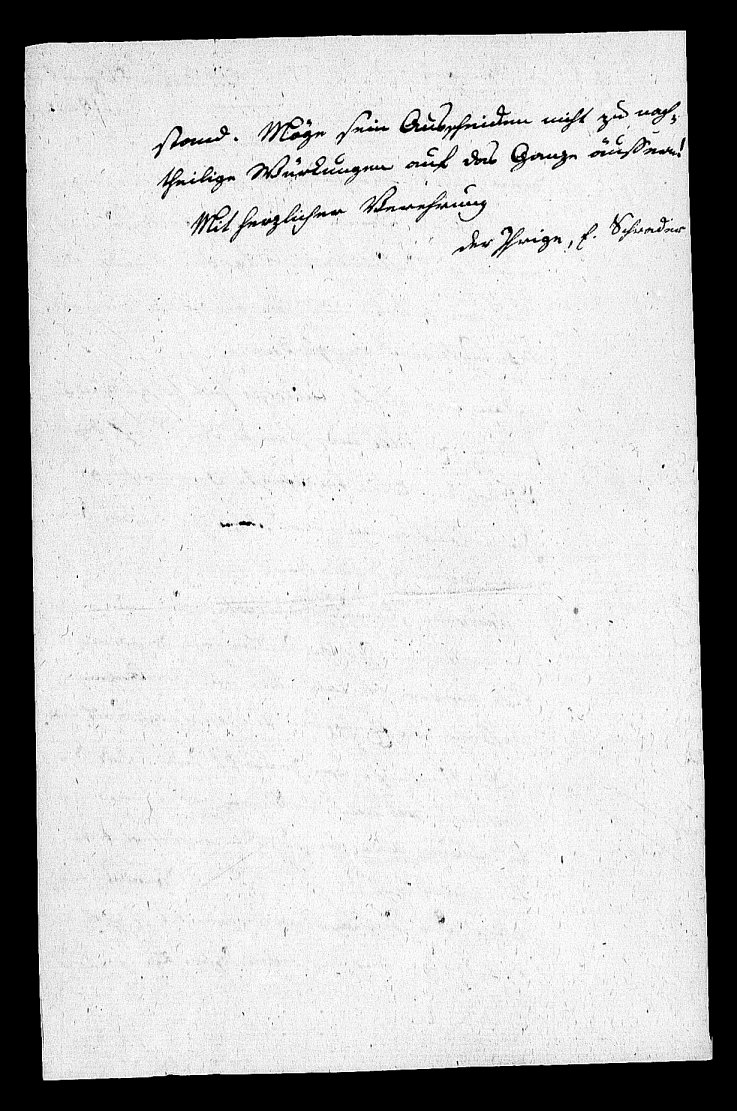 stand. Möge sein Ausscheiden nicht zu nach-
theilige Würkungen auf das Ganze äussern!
Mit herzlicher Verehrung
der Ihrige, F. Schrader